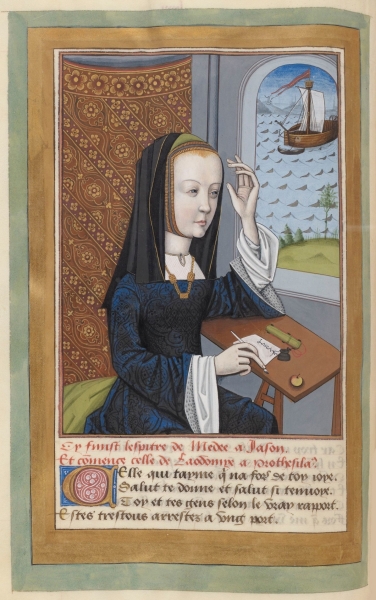 Cy finist lespitre de Medee a Jason.
Et cõmence celle de Laodomye a prothesilaꝰ
Elle qui tayme q̃ na forꝭ de toy joye.
Salut te donne et salut si tenuoye.
Toy et tes gens selon le vray raport.
Estes trestous arrestes a vng port.